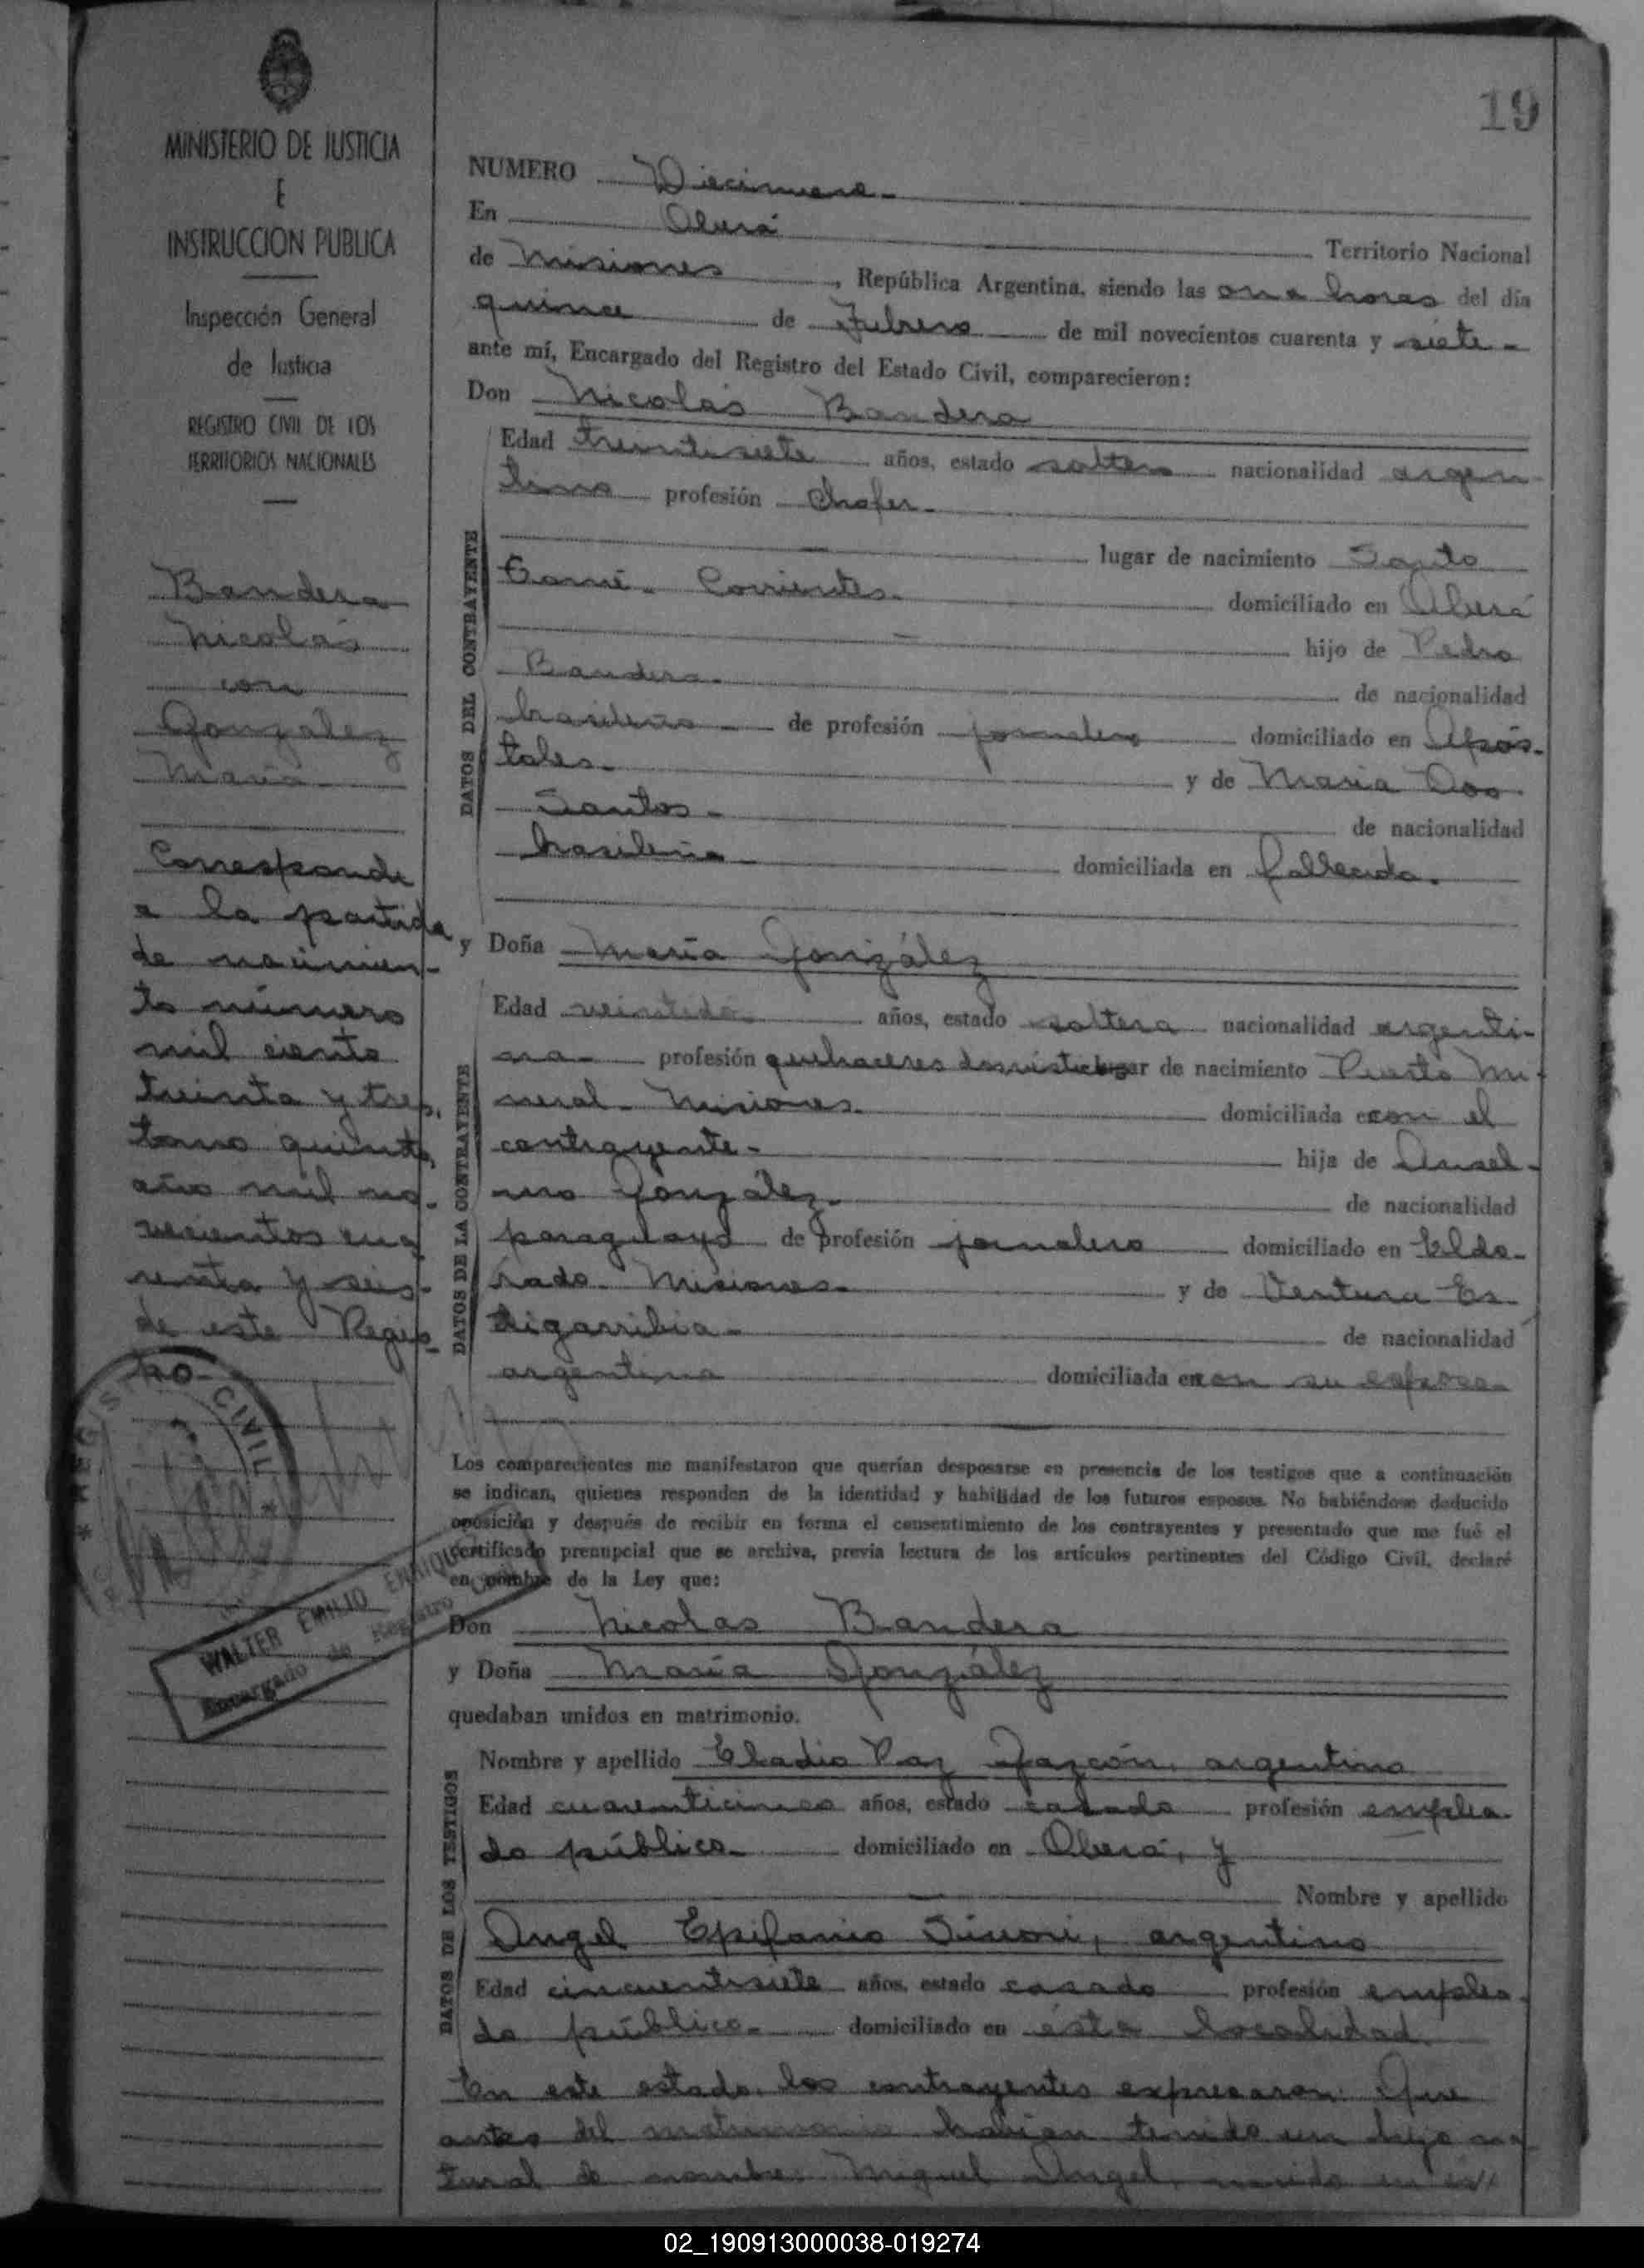 MINISTERIO DE JUSTICIA
E
INSTRUCCION PUBLICA
Inspección General
de Justicia
REGISTRO CIVIL DE LOS
TERRITORIOS NACIONALES
Bandera
Nicolás
con
González
María
Corresponde
a la partida
de nacimien-
to número
mil ciento
treinta y tres,
tomo quinto,
año mil no-
vecientos cua
renta y seis-
de este Regis
tro-
REGISTRO CIVIL
WALTER EMILIO ENRIQUE
Encargado de Registro
19
NUMERO Diecinueve-
En Oberá Territorio Nacional
de Misiones, República Argentina, siendo las once horas del día
quince de Febrero de mil novecientos cuarenta y siete-
ante mí, Encargado del Registro del Estado Civil, comparecieron:
Don Nicolás Bandera
DATOS DEL CONTRAYENTE
Edad treintisiete años, estado soltero nacionalidad argen-
tino profesión chofer-
lugar de nacimiento Santo
Tomé- Corrientes- domiciliado en Oberá
hijo de Pedro
Bandera- de nacionalidad
brasileño- de profesión jornalero domiciliado en Após-
toles- y de María Dos
Santos- de nacionalidad
brasileña- domiciliada en fallecida.
y Doña María González
DATOS DE LA CONTRAYENTE
Edad veintidós años, estado soltera nacionalidad argenti-
na- profesión quehaceres domésticos lugar de nacimiento Puerto Mi-
neral- Misiones- domiciliada en con el
contrayente- hija de Ansel-
mo González- de nacionalidad
paraguayo de profesión jornalero domiciliado en Eldo-
rado- Misiones- y de Ventura Es-
tigarribia- de nacionalidad
argentina domiciliada en con su esposo-
Los comparecientes me manifestaron que querían desposarse en presencia de los testigos que a continuación
se indican, quienes responden de la identidad y habilidad de los futuros esposos. No habiéndose deducido
oposición y después de recibir en forma el consentimiento de los contrayentes y presentado que me fué el
certificado prenupcial que se archiva, previa lectura de los artículos pertinentes del Código Civil, declaré
en nombre de la Ley que:
Don Nicolas Bandera
y Doña María González
quedaban unidos en matrimonio.
DATOS DE LOS TESTIGOS
Nombre y apellido Eladio Paz argentino
Edad cuarenticinco años, estado casado profesión emplea-
do público- domiciliado en Oberá, y
Nombre y apellido
Angel Epifanio argentino
Edad cincuentisiete años, estado casado profesión emplea-
do público- domiciliado en ésta localidad.
En este estado, los contrayentes expresaron: Que
antes del matrimonio habían tenido un hijo na-
tural de nombre: Miguel Angel, nacido en
02_190913000038-019274